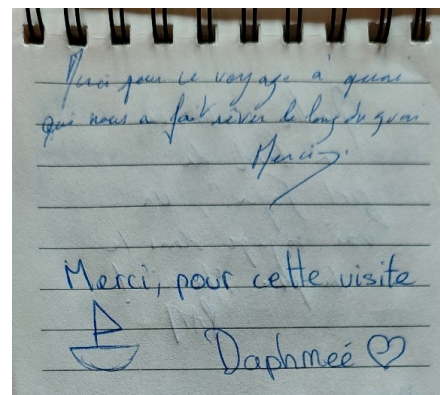 Merci pour ce voyage à quai
qui nous a fait rêver le long du quai
Merci.
Merci, pour cette visite
Daphmeé